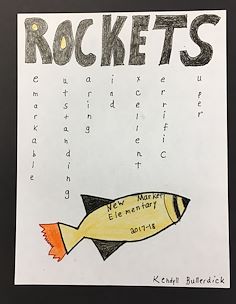 ROCKETS
emarkable
utstanding
aring
ind
xcellent
errific
uper
New Market
Elementary
2017-18
Kendall Bullerdick